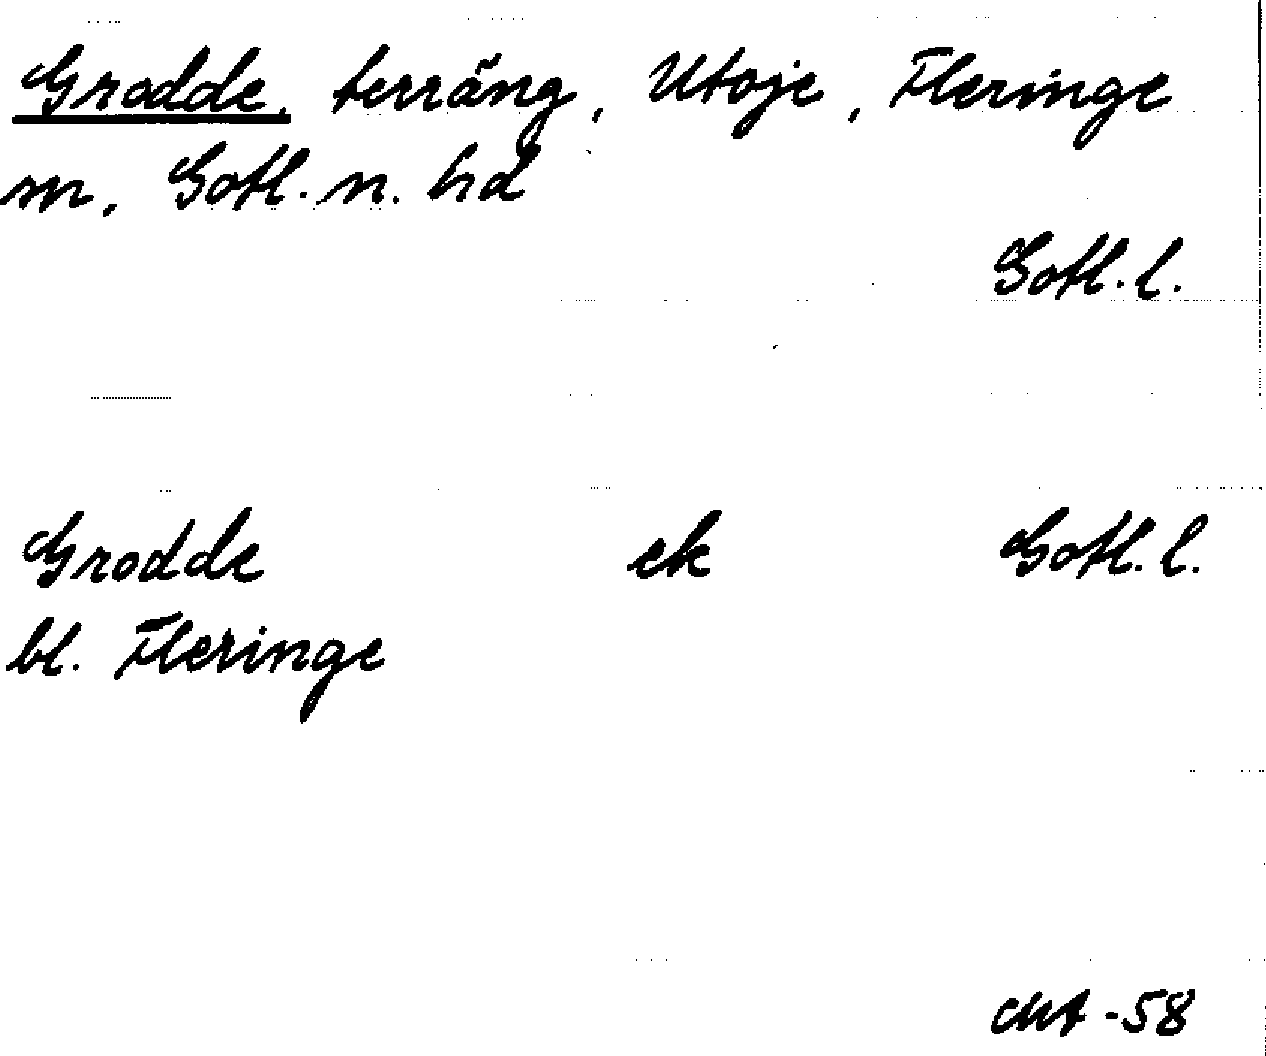 Grodde, terräng, Utoje, Fleringe
sn, Gotl. n. hd
Gotl. l.
Grodde ek Gotl. l.
bl. Fleringe
-58